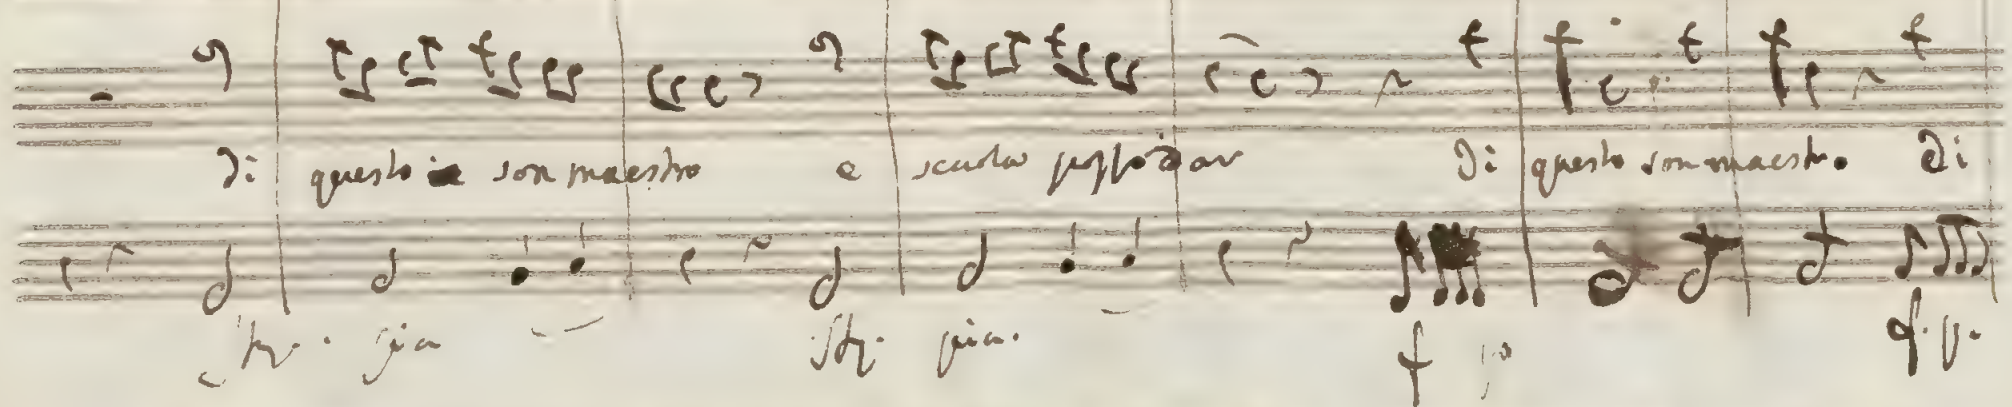 di questo son maestro e scuola posso dar di questo son maestro. di
sfz. pia sfz. pia. f po f. p.